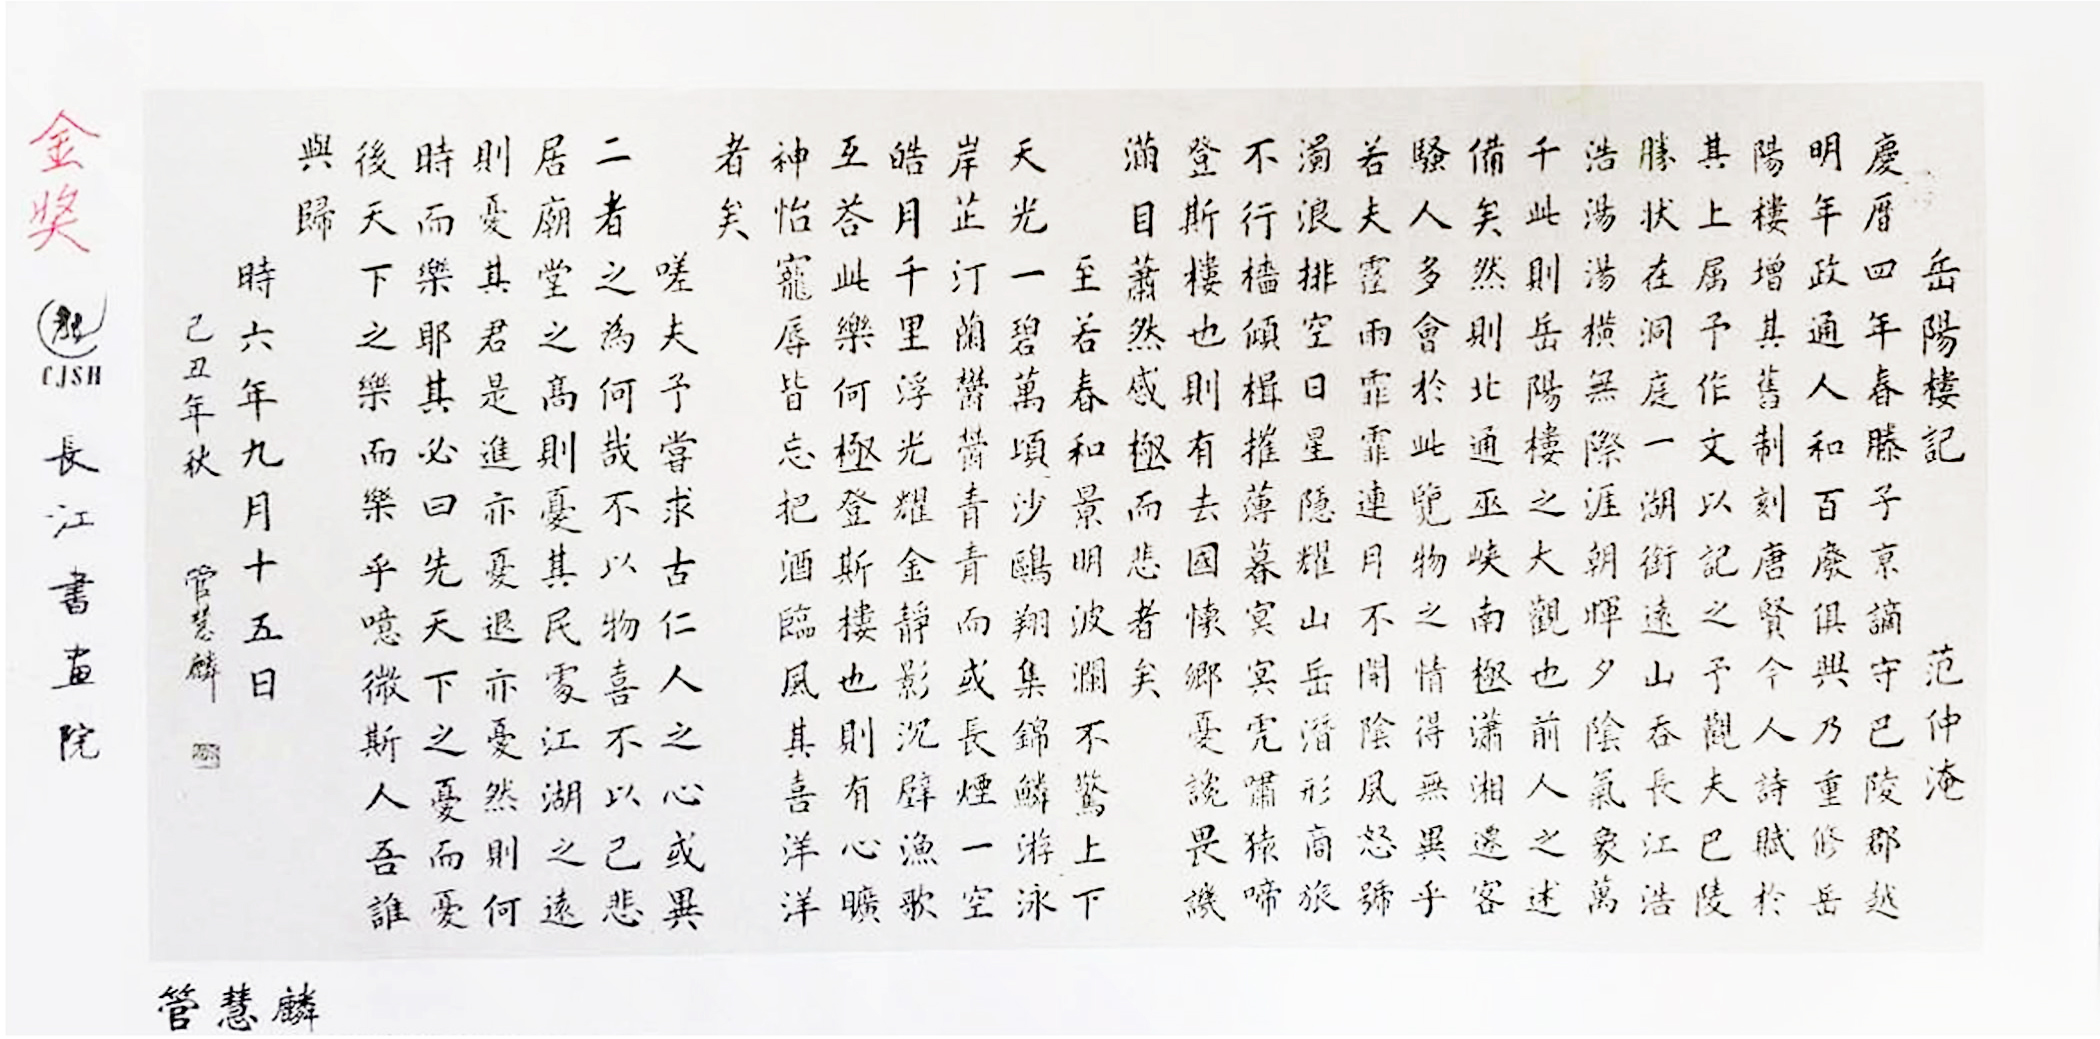 岳陽樓記 范仲淹
慶曆四年春滕子京謫守巴陵郡越
明年政通人和百廢俱興乃重修岳
陽樓增其舊制刻唐賢今人詩賦於
其上属予作文以記之予觀夫巴陵
勝状在洞庭一湖銜遠山吞長江浩
浩湯湯橫無際涯朝暉夕陰氣象萬
千此則岳陽樓之大觀也前人之述
備矣然則北通巫峽南極瀟湘遷客
騷人多會於此覽物之情得無異乎
若夫霪雨霏霏連月不開陰風怒號
濁浪排空日星隱耀山岳潛形商旅
不行檣傾楫摧薄暮冥冥虎嘯猿啼
登斯樓也則有去國懷鄉憂讒畏譏
滿目蕭然感極而悲者矣
至若春和景明波瀾不驚上下
天光一碧萬頃沙鷗翔集錦鱗游泳
岸芷汀蘭鬱鬱青青而或長煙一空
皓月千里浮光耀金靜影沉璧漁歌
互荅此樂何極登斯樓也則有心曠
神怡寵辱皆忘把酒臨風其喜洋洋
者矣
嗟夫予嘗求古仁人之心或異
二者之為何哉不以物喜不以己悲
居廟堂之高則憂其民處江湖之遠
則憂其君是進亦憂退亦憂然則何
時而樂耶其必曰先天下之憂而憂
後天下之樂而樂乎噫微斯人吾誰
與歸
時六年九月十五日
己丑年秋 管慧麟
金奖
CJSH
長江書画院
管慧麟